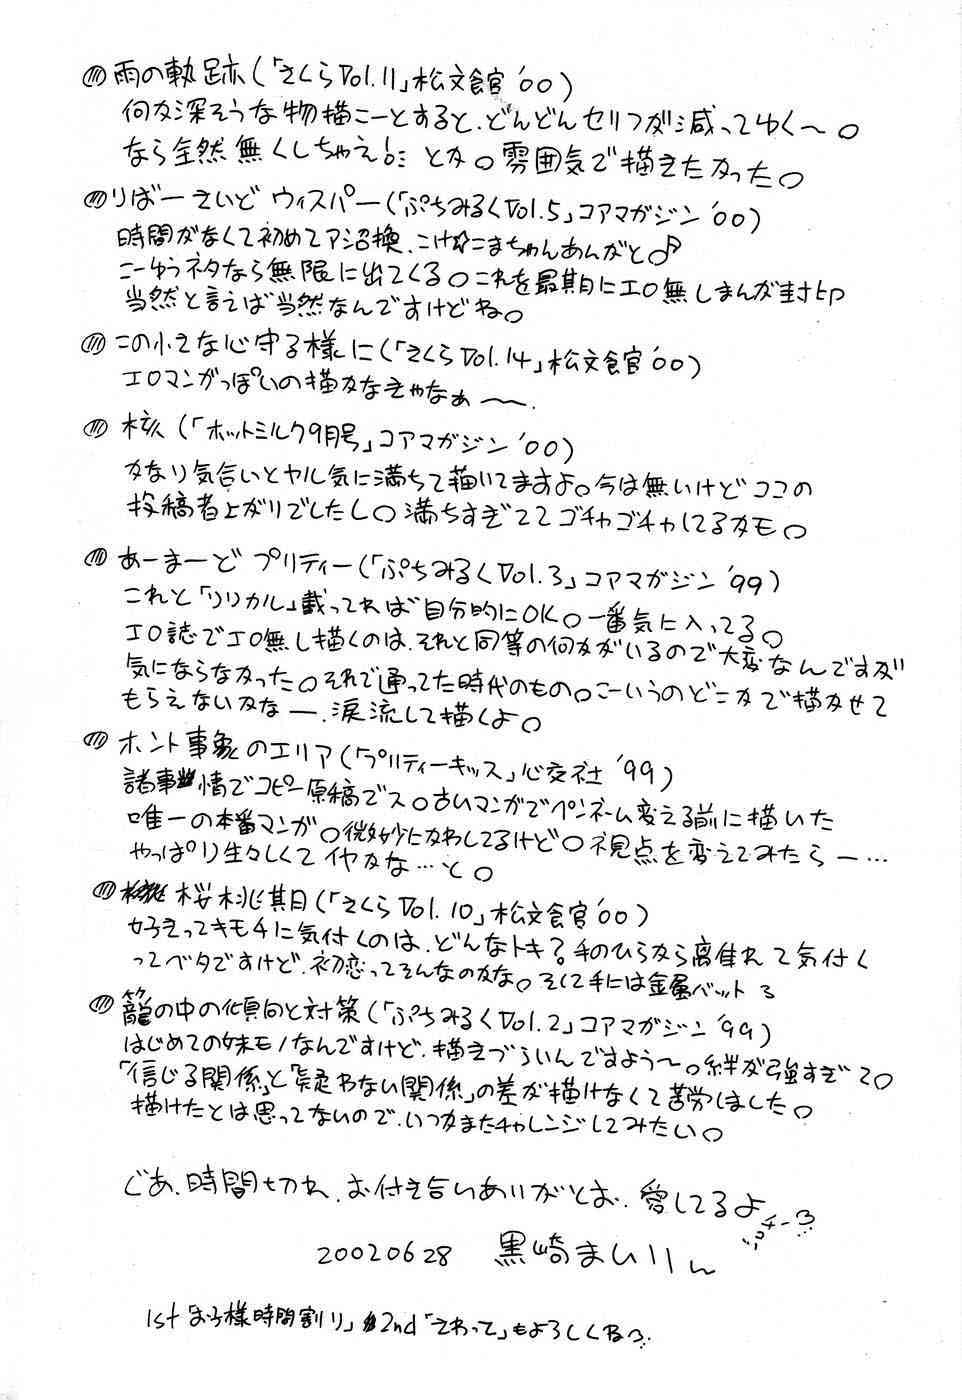 雨の軌跡(「さくらVol.11」松文館'00)
何か深そうな物描こーとすると、どんどんセリフが減ってゆく〜。
なら全然無くしちゃえ!とか。雰囲気で描きたかった。
りばーさいど ウィスパー(「ぷちみるくVol.5」コアマガジン'00)
時間がなくて初めてア沼換、こまちゃんあんがと♪
こーゆうネタなら無限に出てくる。これを最期にエロ無しまんが封印
当然と言えば当然なんですけどね。
この小さな心守る様に(「さくらVol.14」松文館'00)
エロマンガっぽいの描かなきゃなぁ〜〜.
核(「ホットミルク9月号」コアマガジン'00)
かなり気合いとヤル気に満ちて描いてますよ。今は無いけどココの
投稿者上がりでしたし。満ちすぎててゴチャゴチャしてるかも。
あーまーど プリティー(「ぷちみるくVol.3」コアマガジン'99)
これと「リリカル」載ってれば自分的にOK。一番気に入ってる。
エロ誌でエロ無し描くのは、それと同等の何かがいるので大変なんですが
気にならなかった。それで通ってた時代のもの。こーいうのどこかで描かせて
もらえないかなー、涙流して描くよ。
ホント事象のエリア(「プリティーキッス」心交社'99)
諸事情でコピー原稿でス。古いマンガでペンネーム変える前に描いた
唯一の本番マンガ。微妙にかわしてるけど。視点を変えてみたらー…
やっぱり生々しくてイヤかな…と。
桜桃期(「さくらVol.10」松文館'00)
好きってキモチに気付くのは、どんなトキ?手のひらから離れて気付く
ってベタですけど、初恋ってそんなのかな。そして手には金属バット
籠の中の傾向と対策(「ぷちみるくVol.2」コアマガジン'99)
はじめての妹モノなんですけど、描きづらいんですよう〜。絆が強すぎて。
「信じる関係」と「疑わない関係」の差が描けなくて苦労しました。
描けたとは思ってないので、いつかまたチャレンジしてみたい。
じあ、時間切れ、お付き合いありがとお、愛してるよ
20020628 黒崎まいり
1st「お子様時間割り」2nd「さわって」もよろしくねっ